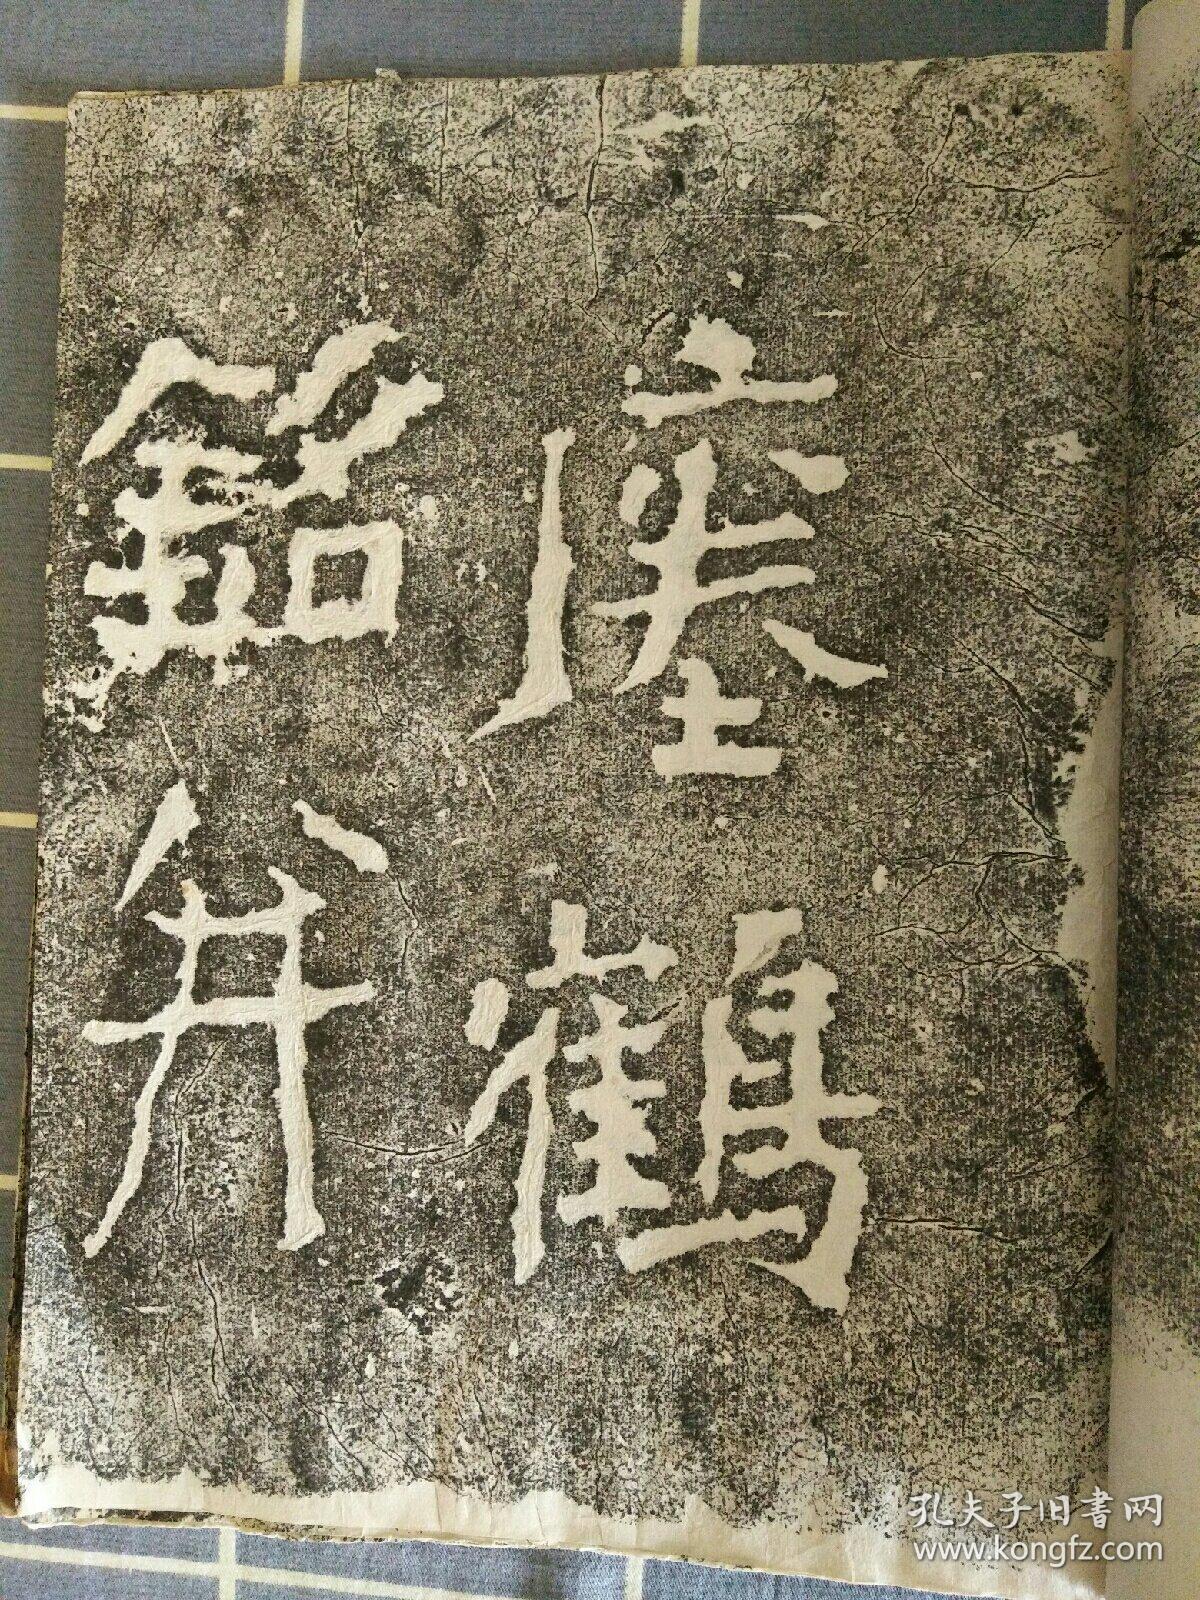 瘞鶴
銘并
孔夫子旧書网
www.kongfz.com